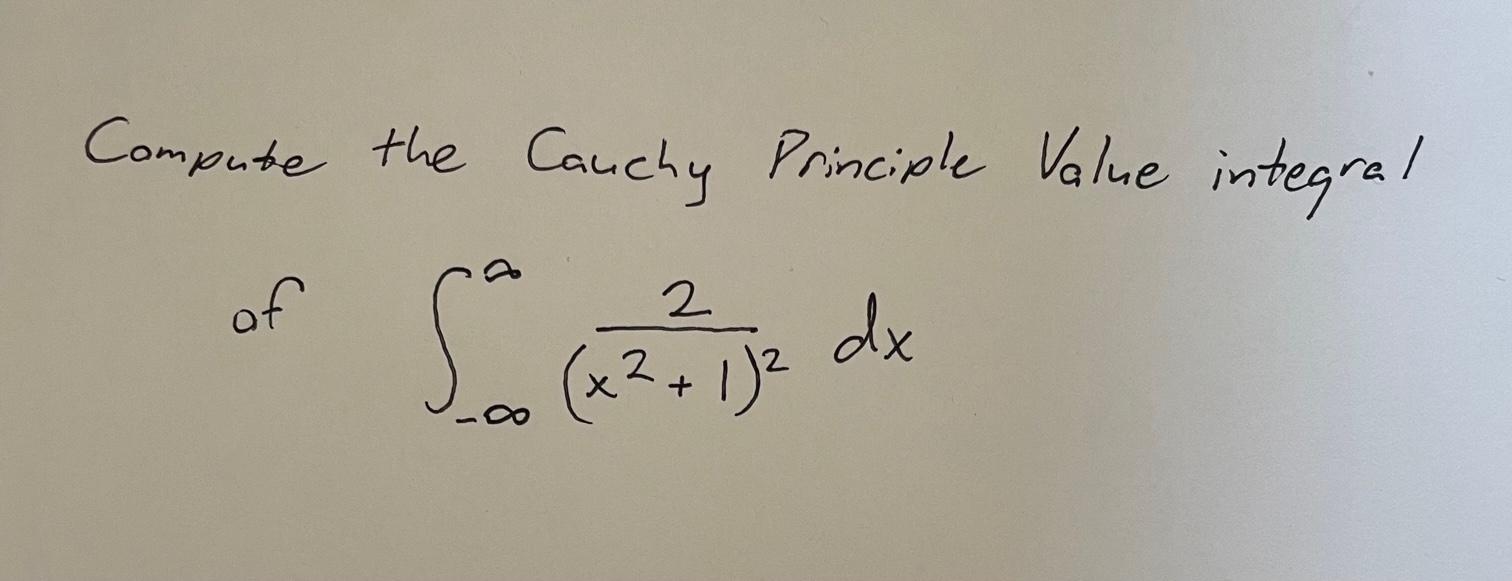 Compute the Cauchy Principle Value integral
of ∫_{-∞}^{∞} \frac{2}{(x^2+1)^2} dx